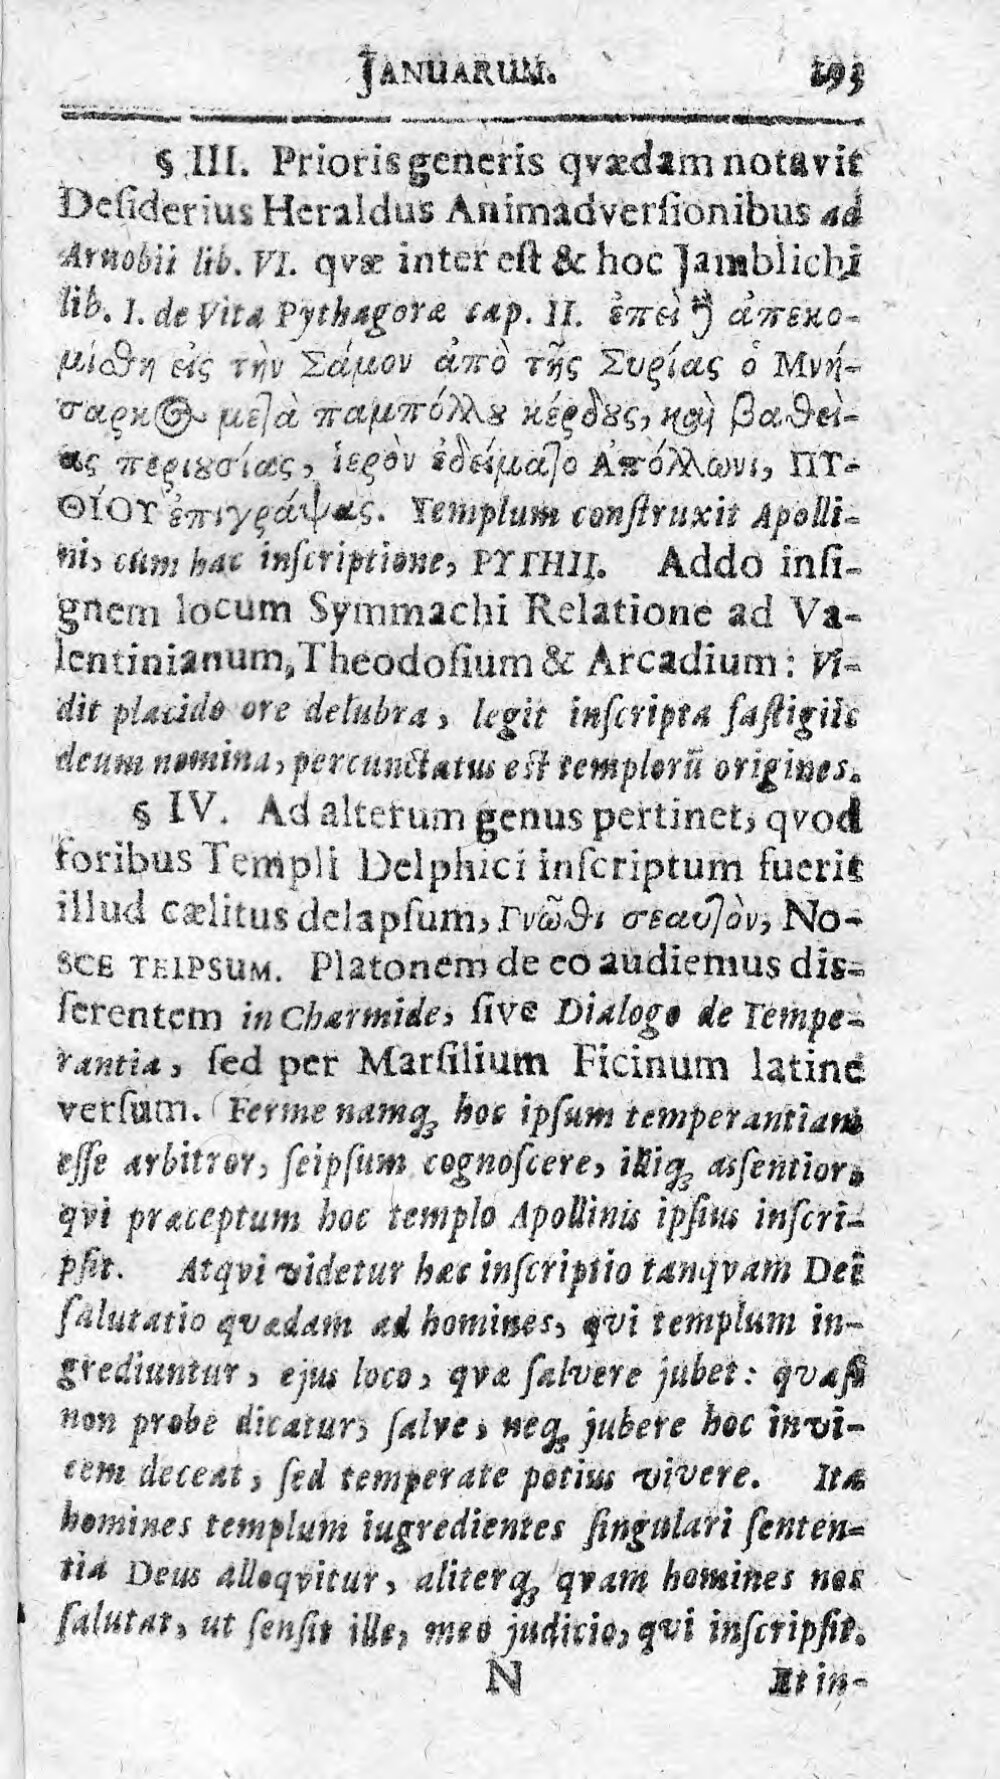 JANUARUM. 193
§ III. Prioris generis qvædam notavit
Deſiderius Heraldus Animadverſionibus ad
Arnobii lib. VI. qvæ inter eſt & hoc Jamblichi
lib. I. de Vita Pythagoræ cap. II. ἐπεὶ ἢ ἀπεκο-
μίϑη εἰς τὴν Σάμον ἀπὸ τῆς Συρίας ὁ Μνή-
σαρκος μεταὰ παμπόλλȣ κέρδȣς, καὶ βαϑεί-
ας περιȣσίας, ἱερὸν ἐδείματο Ἀπόλλωνι, ΠΥ-
ΘΙΟΥ ἐπιγράψας. Templum conſtruxit Apolli-
ni, cum hac inſcriptione, PYTHII. Addo inſi-
gnem locum Symmachi Relatione ad Va-
lentinianum, Theodoſium & Arcadium: Vi-
dit placido ore delubra, legit inſcripta faſtigiis
deum nomina, percunctatus eſt templorũ origines.
§ IV. Ad alterum genus pertinet, qvod
foribus Templi Delphici inſcriptum fuerit
illud cælitus delapſum, Γνῶϑι σεαυτὸν, No-
SCE TEIPSUM. Platonem de eo audiemus dis-
ſerentem in Charmide, ſive Dialogo de Tempe-
rantia, ſed per Marſilium Ficinum latine
verſum. Ferme namqꝫ hoc ipſum temperantiam
eſſe arbitror, ſeipſum cognoſcere, illiqꝫ asſentior,
qvi præceptum hoc templo Apollinis ipſius inſcri-
pſit. Atqvi videtur hæc inſcriptio tanqvam Dei
ſalutatio qvædam ad homines, qvi templum in-
grediuntur, ejus loco, qvæ ſalvere jubet: qvaſi
non probe dicatur, ſalve, neqꝫ jubere hoc invi-
cem deceat, ſed temperate potius vivere. Ita
homines templum iugredientes ſingulari ſenten-
tia Deus alloqvitur, aliterqꝫ qvam homines nos
ſalutat, ut ſenſit ille, meo judicio, qvi inſcripſit.
N Et in-